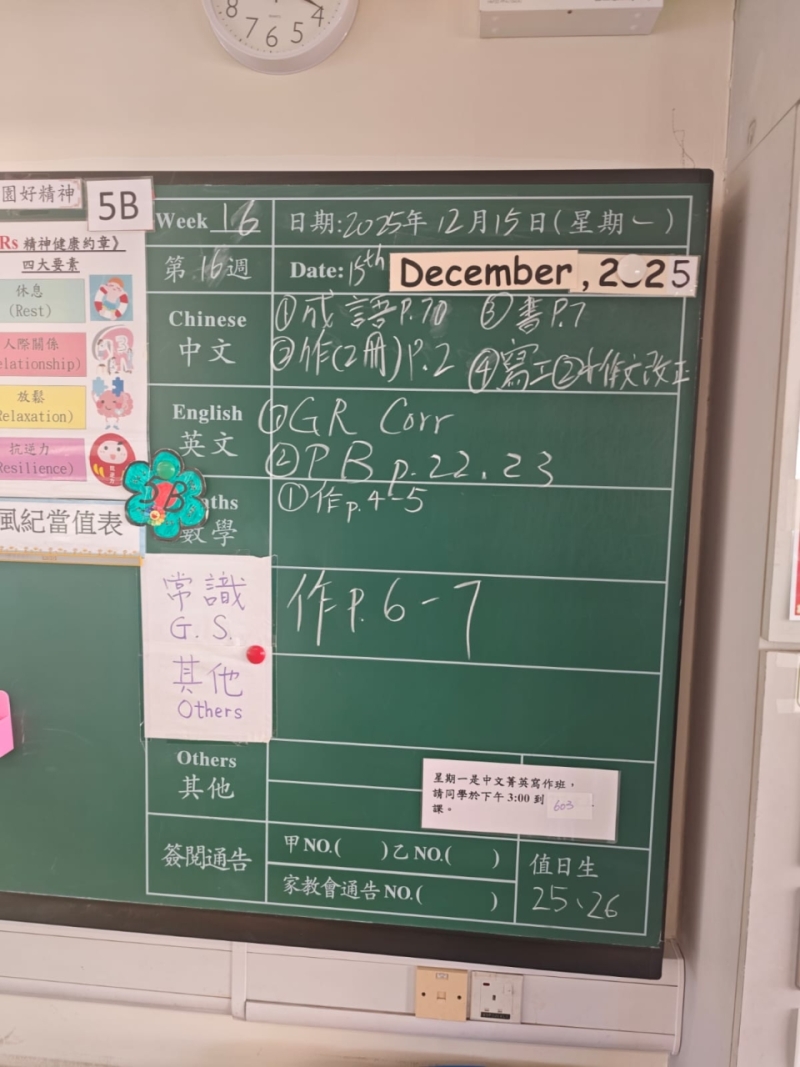 8 7 6 5 4
園好精神
5B
Rs 精神健康約章》
四大要素
休息
(Rest)
人際關係
elationship)
放鬆
Relaxation)
抗逆力
Resilience)
5B
風紀當值表
Week 16
日期:2025年12月15日(星期一)
第16週
Date: 15th December, 2025
Chinese
中文
①成語P.70 ③書P.7
②作(2冊)P.2 ④寫工②作文改正
English
英文
①GR Corr
②PB p.22, 23
aths
數學
①作p.4-5
常識
G.S.
作P.6-7
其他
Others
Others
其他
星期一是中文菁英寫作班,
請同學於下午3:00到 603
課。
簽閱通告
甲NO.( )乙NO.( )
家教會通告NO.( )
值日生
25、26